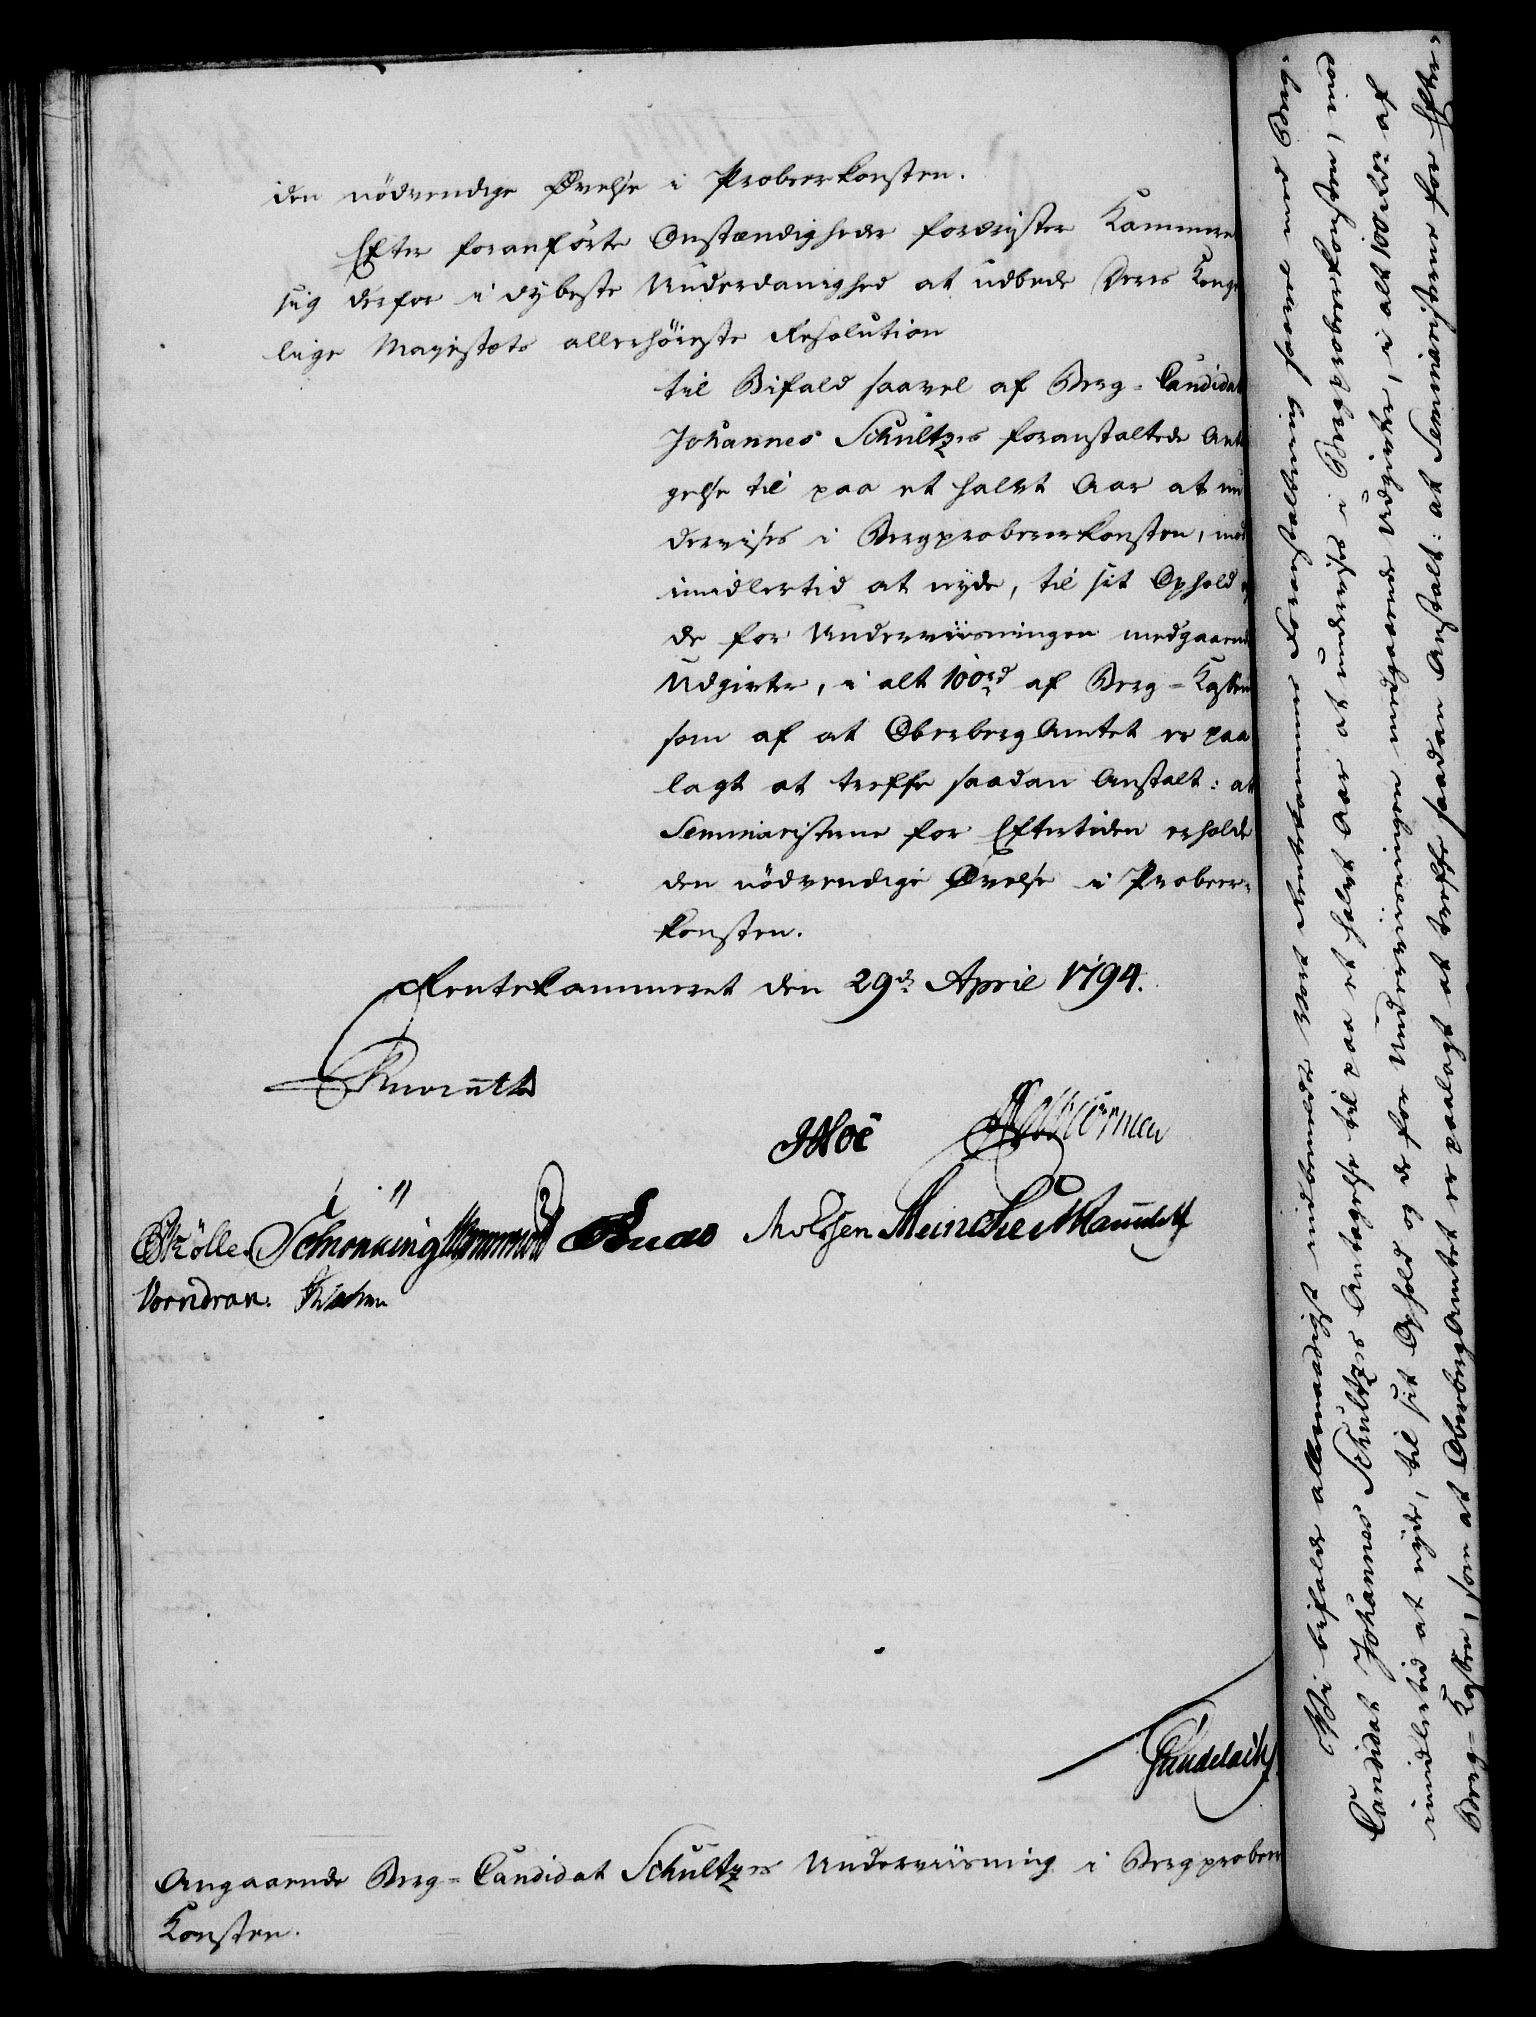 den nödvendige Øvelse i Probeerkonsten.
Efter foranførte Omstændigheder fordrister Kammeret
sig derfor i dybeste Underdanighed at udbede Deres Konge
lige Majestæts allerhöieste Resolution
til Bifald saavel af Berg-Candidat
Johannes Schultzes foranstaltede Anta
gelse til paa et halvt Aar at un
dervises i Bergprobeerkonsten, mod
imidlertid at nyde, til sit Ophold og
de for Underviisningen medgaaende
Udgivter, i alt 100 rd af Berg-Kassen
som af at Oberberg Amtet er paa
lagt at treffe saadan Anstalt: at
Seminaristerne for Eftertiden erholde
den nödvendige Øvelse i Probeer-
konsten.
Rentekammeret den 29d April 1794.
Knuth
JHoë Wormen
Möller Schönning Wormskiold Buch Moltzen Meincke Randulff
Vorndran.
Gündelach
Angaaende Berg-Candidat Schultzes Underviisning i Bergprobeer
Konsten.
Vi bifalde allernaadigst medbemeldte Vort Rentekammers Foranstaltning saavel med Berg-
Candidat Johannes Schultzes Antagelse til paa et halvt Aar at undervises i Bergprobeerkonsten, mod
imidlertid at nyde, til sit Ophold og de for Underviisningen medgaaende Udgivter, i alt 100 Rdr af
Berg-Kassen, som at Oberberg Amtet er paalagt at treffe saadan Anstalt: at Seminaristerne for Efter-